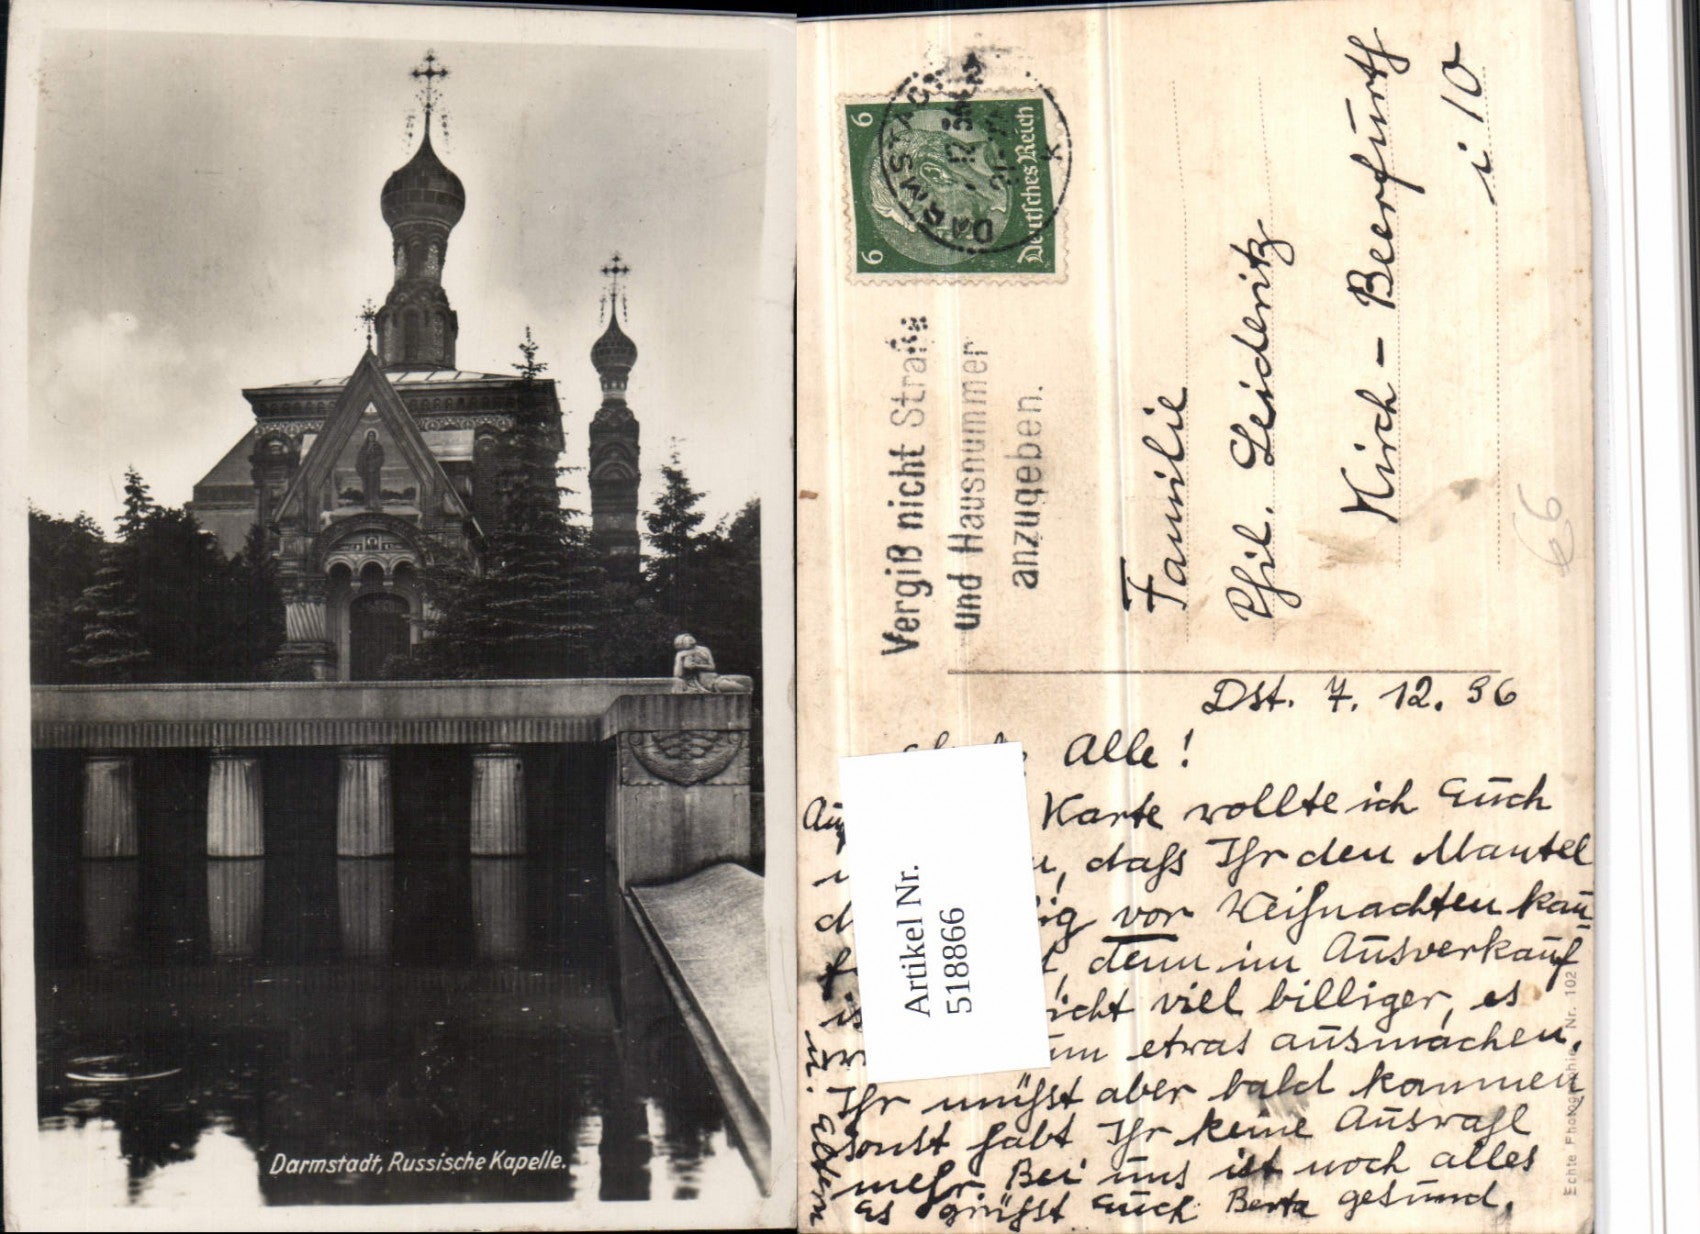 Darmstadt, Russische Kapelle.
6
6
Deutsches Reich
DARMSTADT
Vergiß nicht Straße
und Hausnummer
anzugeben.
Familie
Phil. Leideritz
Kirch - Beerfurth
i 10
66
Dst. 7. 12. 36
Alle!
Karte wollte ich Euch
daß Ihr den Mantel
vor Weihnachten kau
denn im Ausverkauf
viel billiger, es
etwas ausmachen.
Ihr müßt aber bald kommen
sonst habt Ihr keine Auswahl
mehr Bei uns ist noch alles
gesund.
Es grüßt Euch Berta
u. Eltern
Artikel Nr.
518866
Echte Photographie Nr. 102